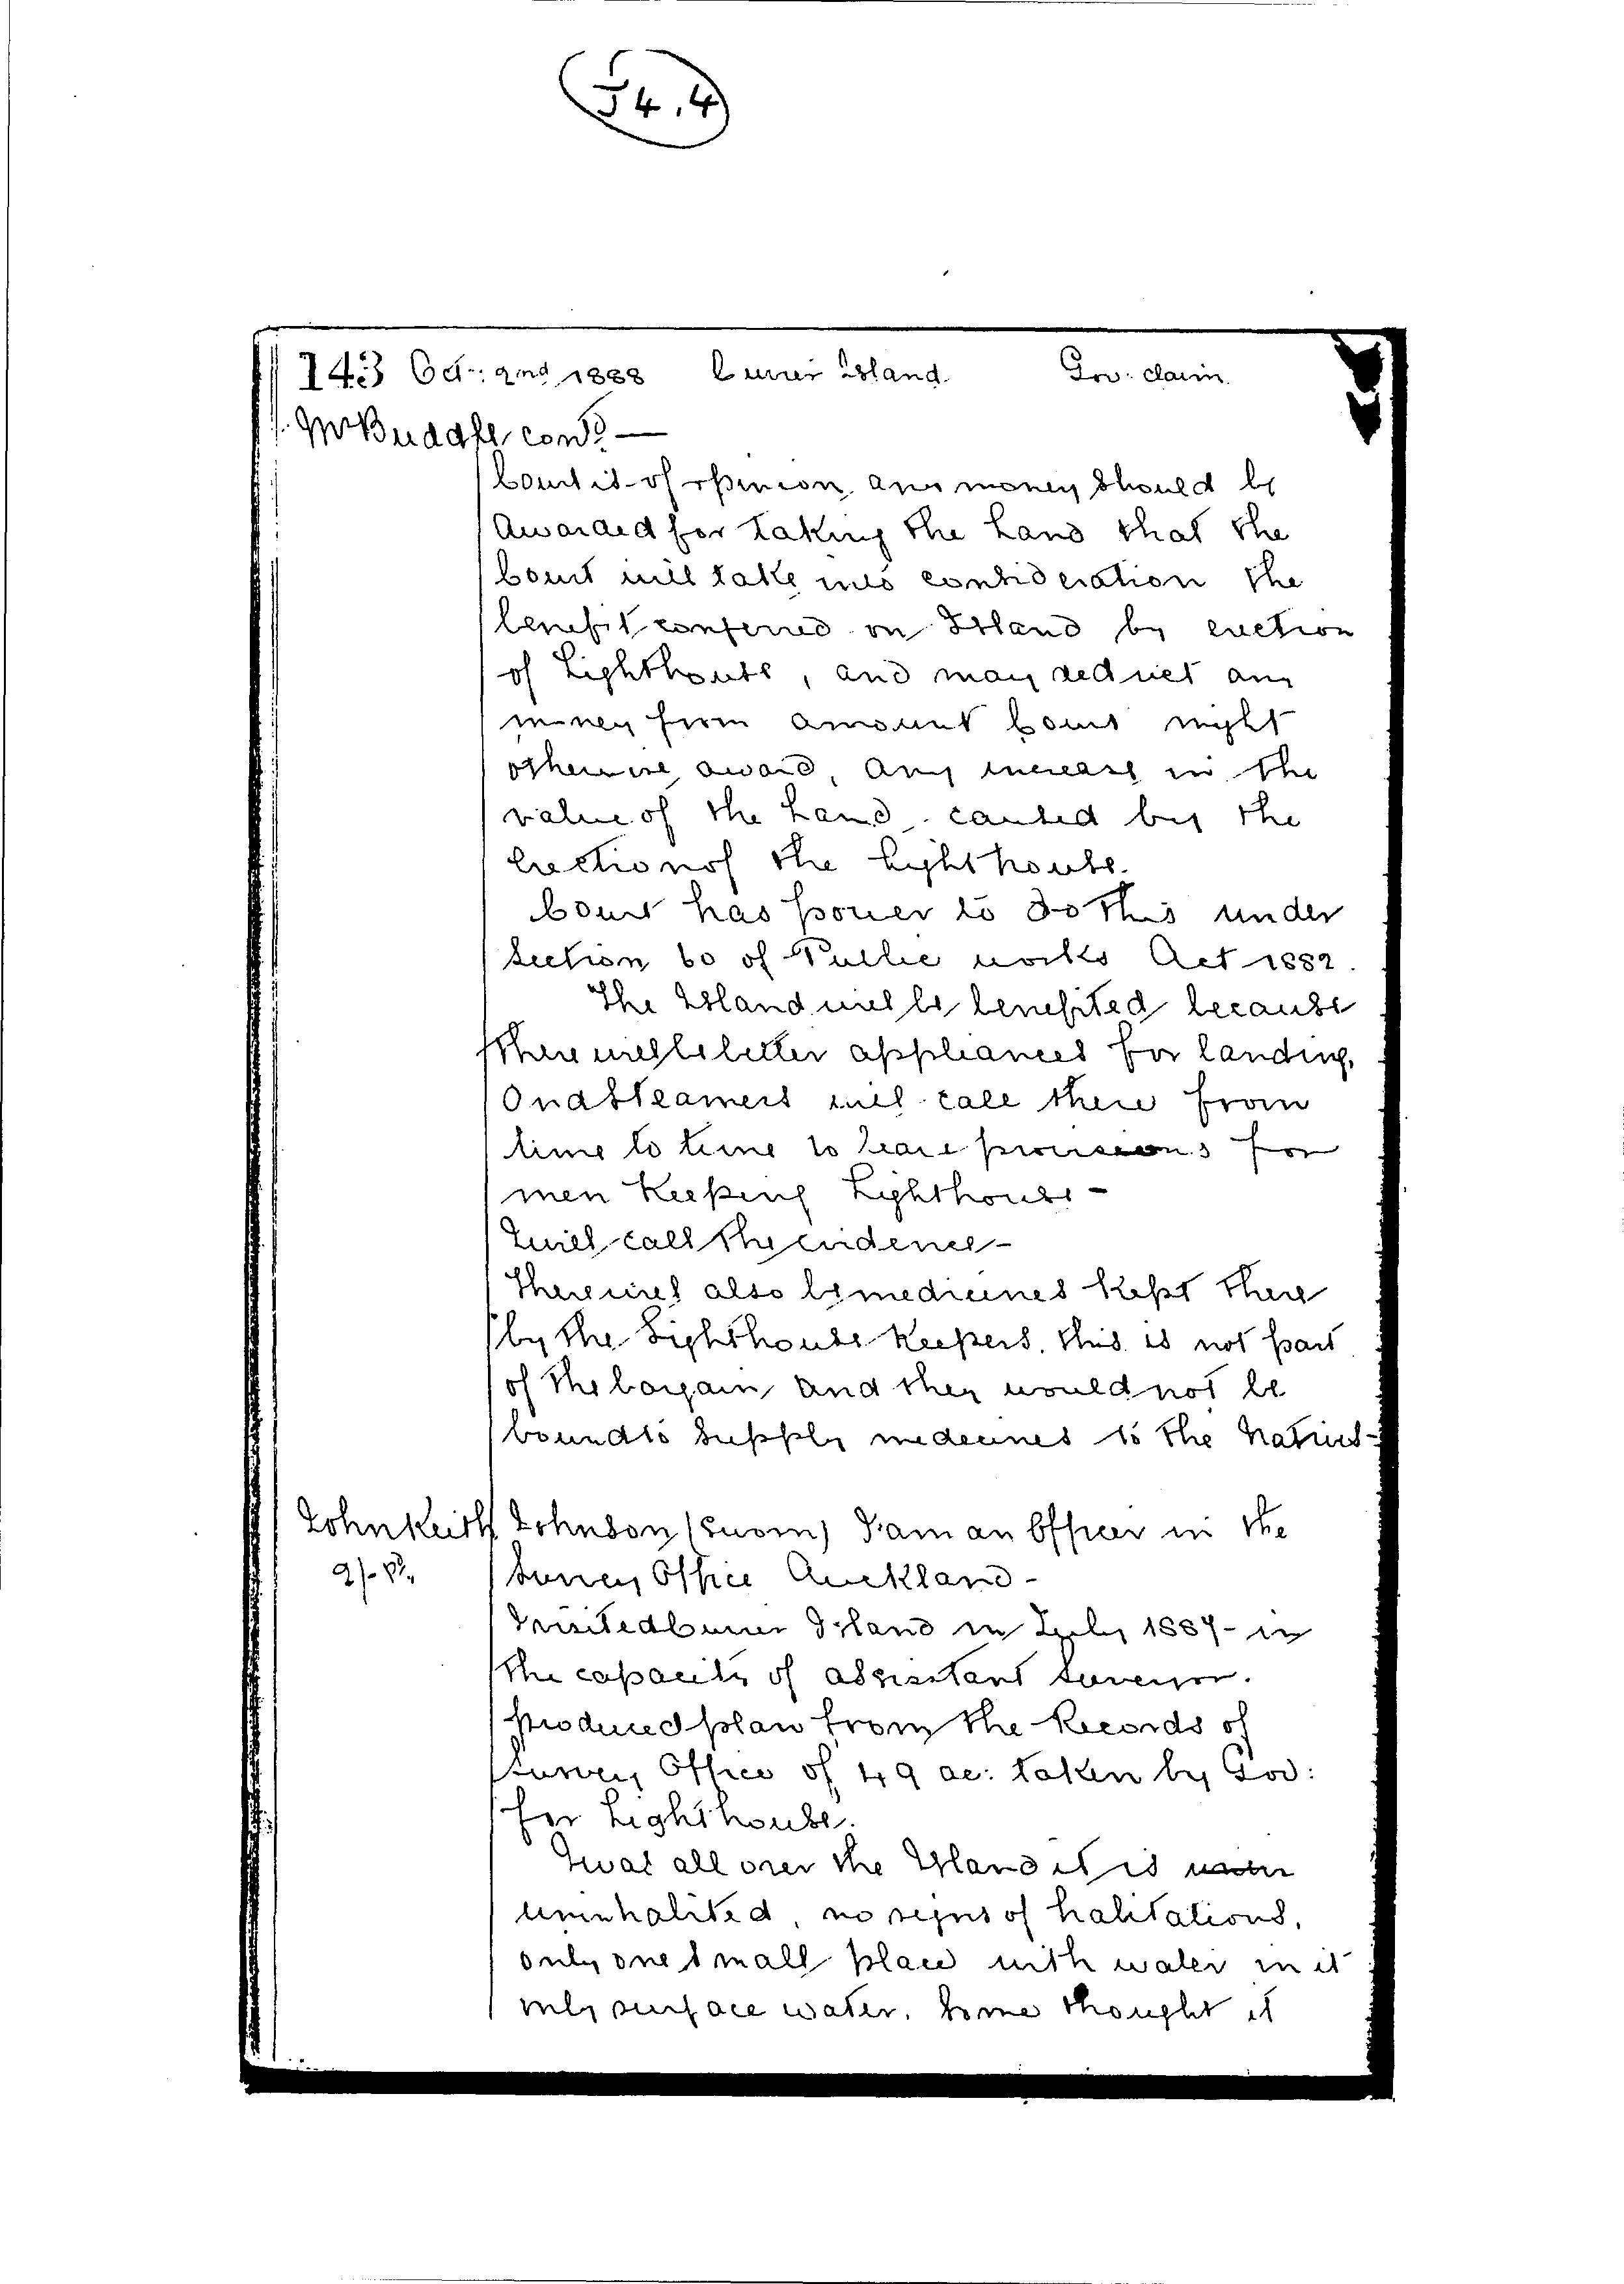 54.4
143 Oct: 2nd 1888 Cuvier Island. Gov: claim.
Mr Buddle cont.d —
Court is of opinion any money should be
Awarded for taking the Land that the
Court will take into consideration the
benefit conferred on Island by erection
of Lighthouse, and may deduct any
money from amount Court might
otherwise award, any increase in the
value of the Land caused by the
Erection of the Lighthouse.
Court has power to do this under
Section 60 of Public works Act 1882.
The Island will be benefited because
there will be better appliances for landing,
and Steamers will call there from
time to time to leave provisions for
men Keeping Lighthouse -
I will call the evidence -
There will also be medicines kept there
by the Lighthouse Keepers, this is not part
of the bargain and they would not be
bound to supply medecines to the Natives -
John Keith Johnson (sworn) I am an Officer in the
2/- Pd. Survey Office Auckland -
I visited Cuvier Island in July 1887 - in
the capacity of assisstant surveyor.
produced plan from the Records of
Survey Office of 49 ac: taken by Gov:
for Lighthouse.
I was all over the Island it is
uninhabited, no signs of habitations,
only one small place with water in it
only surface water. Some thought it